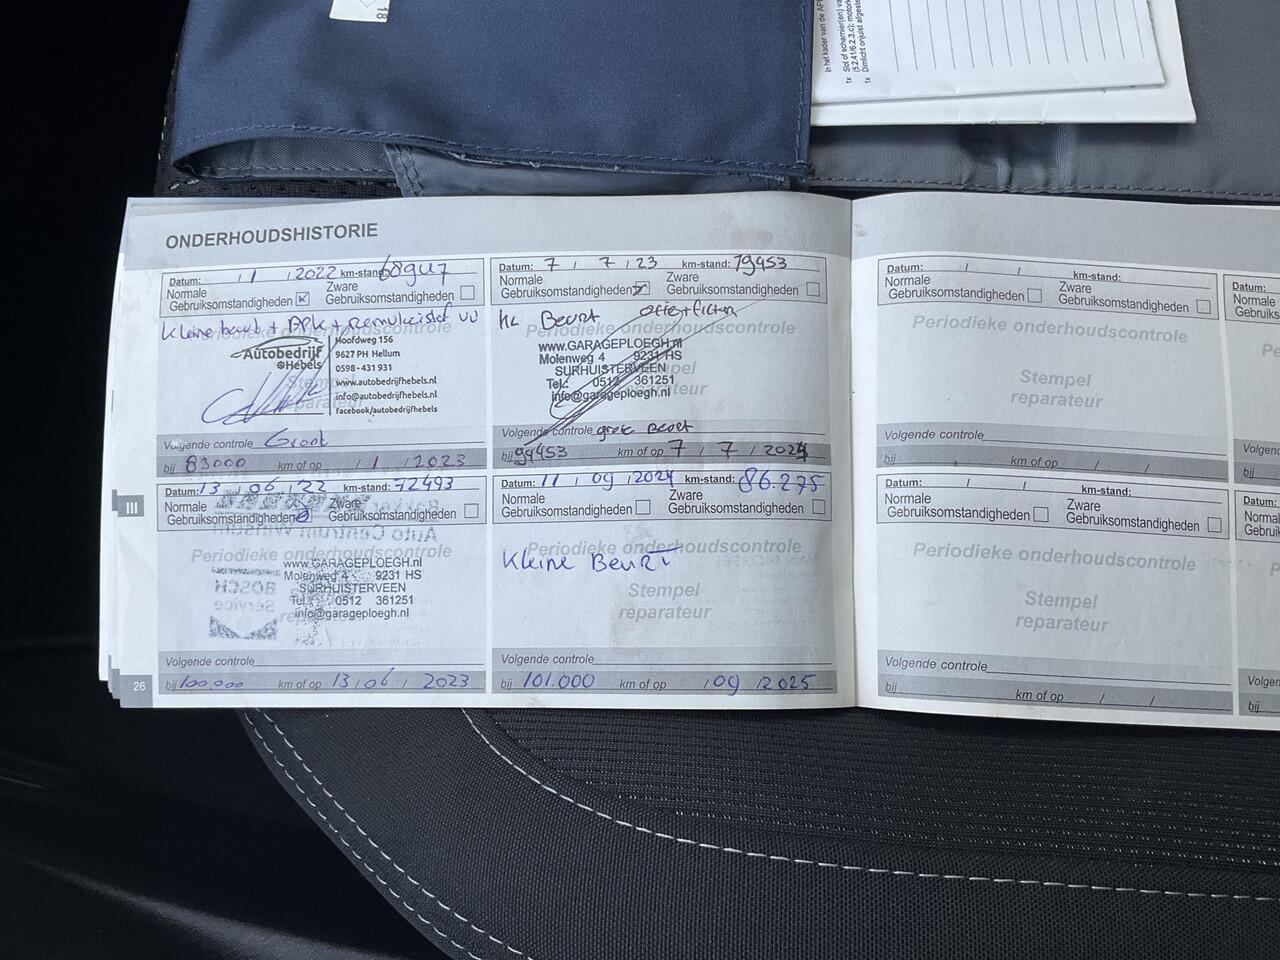 18
In het kader van de AP
1x Slot of scharnier(en) va
(5.2.41/6.2.3.c); motork
1x Dimlicht onjuist afgeste
ONDERHOUDSHISTORIE
Datum: / 1 / 2022 km-stand: 68947
Normale
Gebruiksomstandigheden
Zware
Gebruiksomstandigheden
Kleine beurt + APK + remvloeistof
Periodieke onderhoudscontrole
Autobedrijf
Hebels
Hoofdweg 156
9627 PH Hellum
0598-431 931
www.autobedrijfhebels.nl
info@autobedrijfhebels.nl
facebook/autobedrijfhebels
Stempel
reparateur
Volgende controle Groot
bij 83000 km of op / 1 / 2023
Datum: 7 / 7 / 23 km-stand: 79453
Normale
Gebruiksomstandigheden
Zware
Gebruiksomstandigheden
KL Beurt
Periodieke onderhoudscontrole
www.GARAGEPLOEGH.nl
Molenweg 4 9231 HS
SURHUISTERVEEN
Tel.: 0512 361251
info@garageploegh.nl
Volgende controle grote Beurt
bij 99453 km of op 7 / 7 / 2024
Datum: 13 / 06 / 22 km-stand: 72493
Normale
Gebruiksomstandigheden
Zware
Gebruiksomstandigheden
Auto Centrum Winsum
Periodieke onderhoudscontrole
www.GARAGEPLOEGH.nl
Molenweg 4 9231 HS
SURHUISTERVEEN
Tel.: 0512 361251
info@garageploegh.nl
BOSCH
Service
Volgende controle
bij 100.000 km of op 13 / 06 / 2023
Datum: 11 / 09 / 2024 km-stand: 86.275
Normale
Gebruiksomstandigheden
Zware
Gebruiksomstandigheden
Periodieke onderhoudscontrole
Kleine Beurt
Stempel
reparateur
Volgende controle
bij 101.000 km of op / 09 / 2025
III
26
Datum: / / km-stand:
Normale
Gebruiksomstandigheden
Zware
Gebruiksomstandigheden
Periodieke onderhoudscontrole
Stempel
reparateur
Volgende controle
bij km of op / /
Datum: / / km-stand:
Normale
Gebruiksomstandigheden
Zware
Gebruiksomstandigheden
Periodieke onderhoudscontrole
Stempel
reparateur
Volgende controle
bij km of op / /
Datum:
Normale
Gebruik
Volgen
bij
Datum:
Norma
Gebruik
Volge
bij